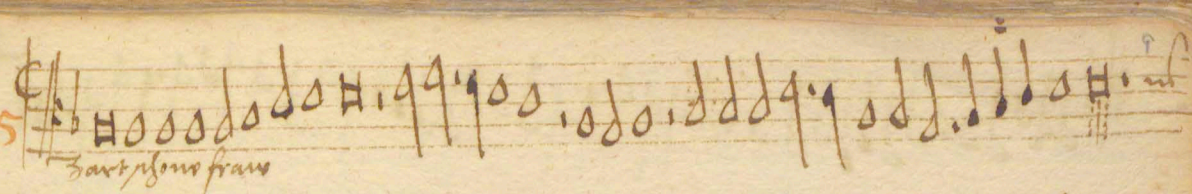 5
Zart schone fraw